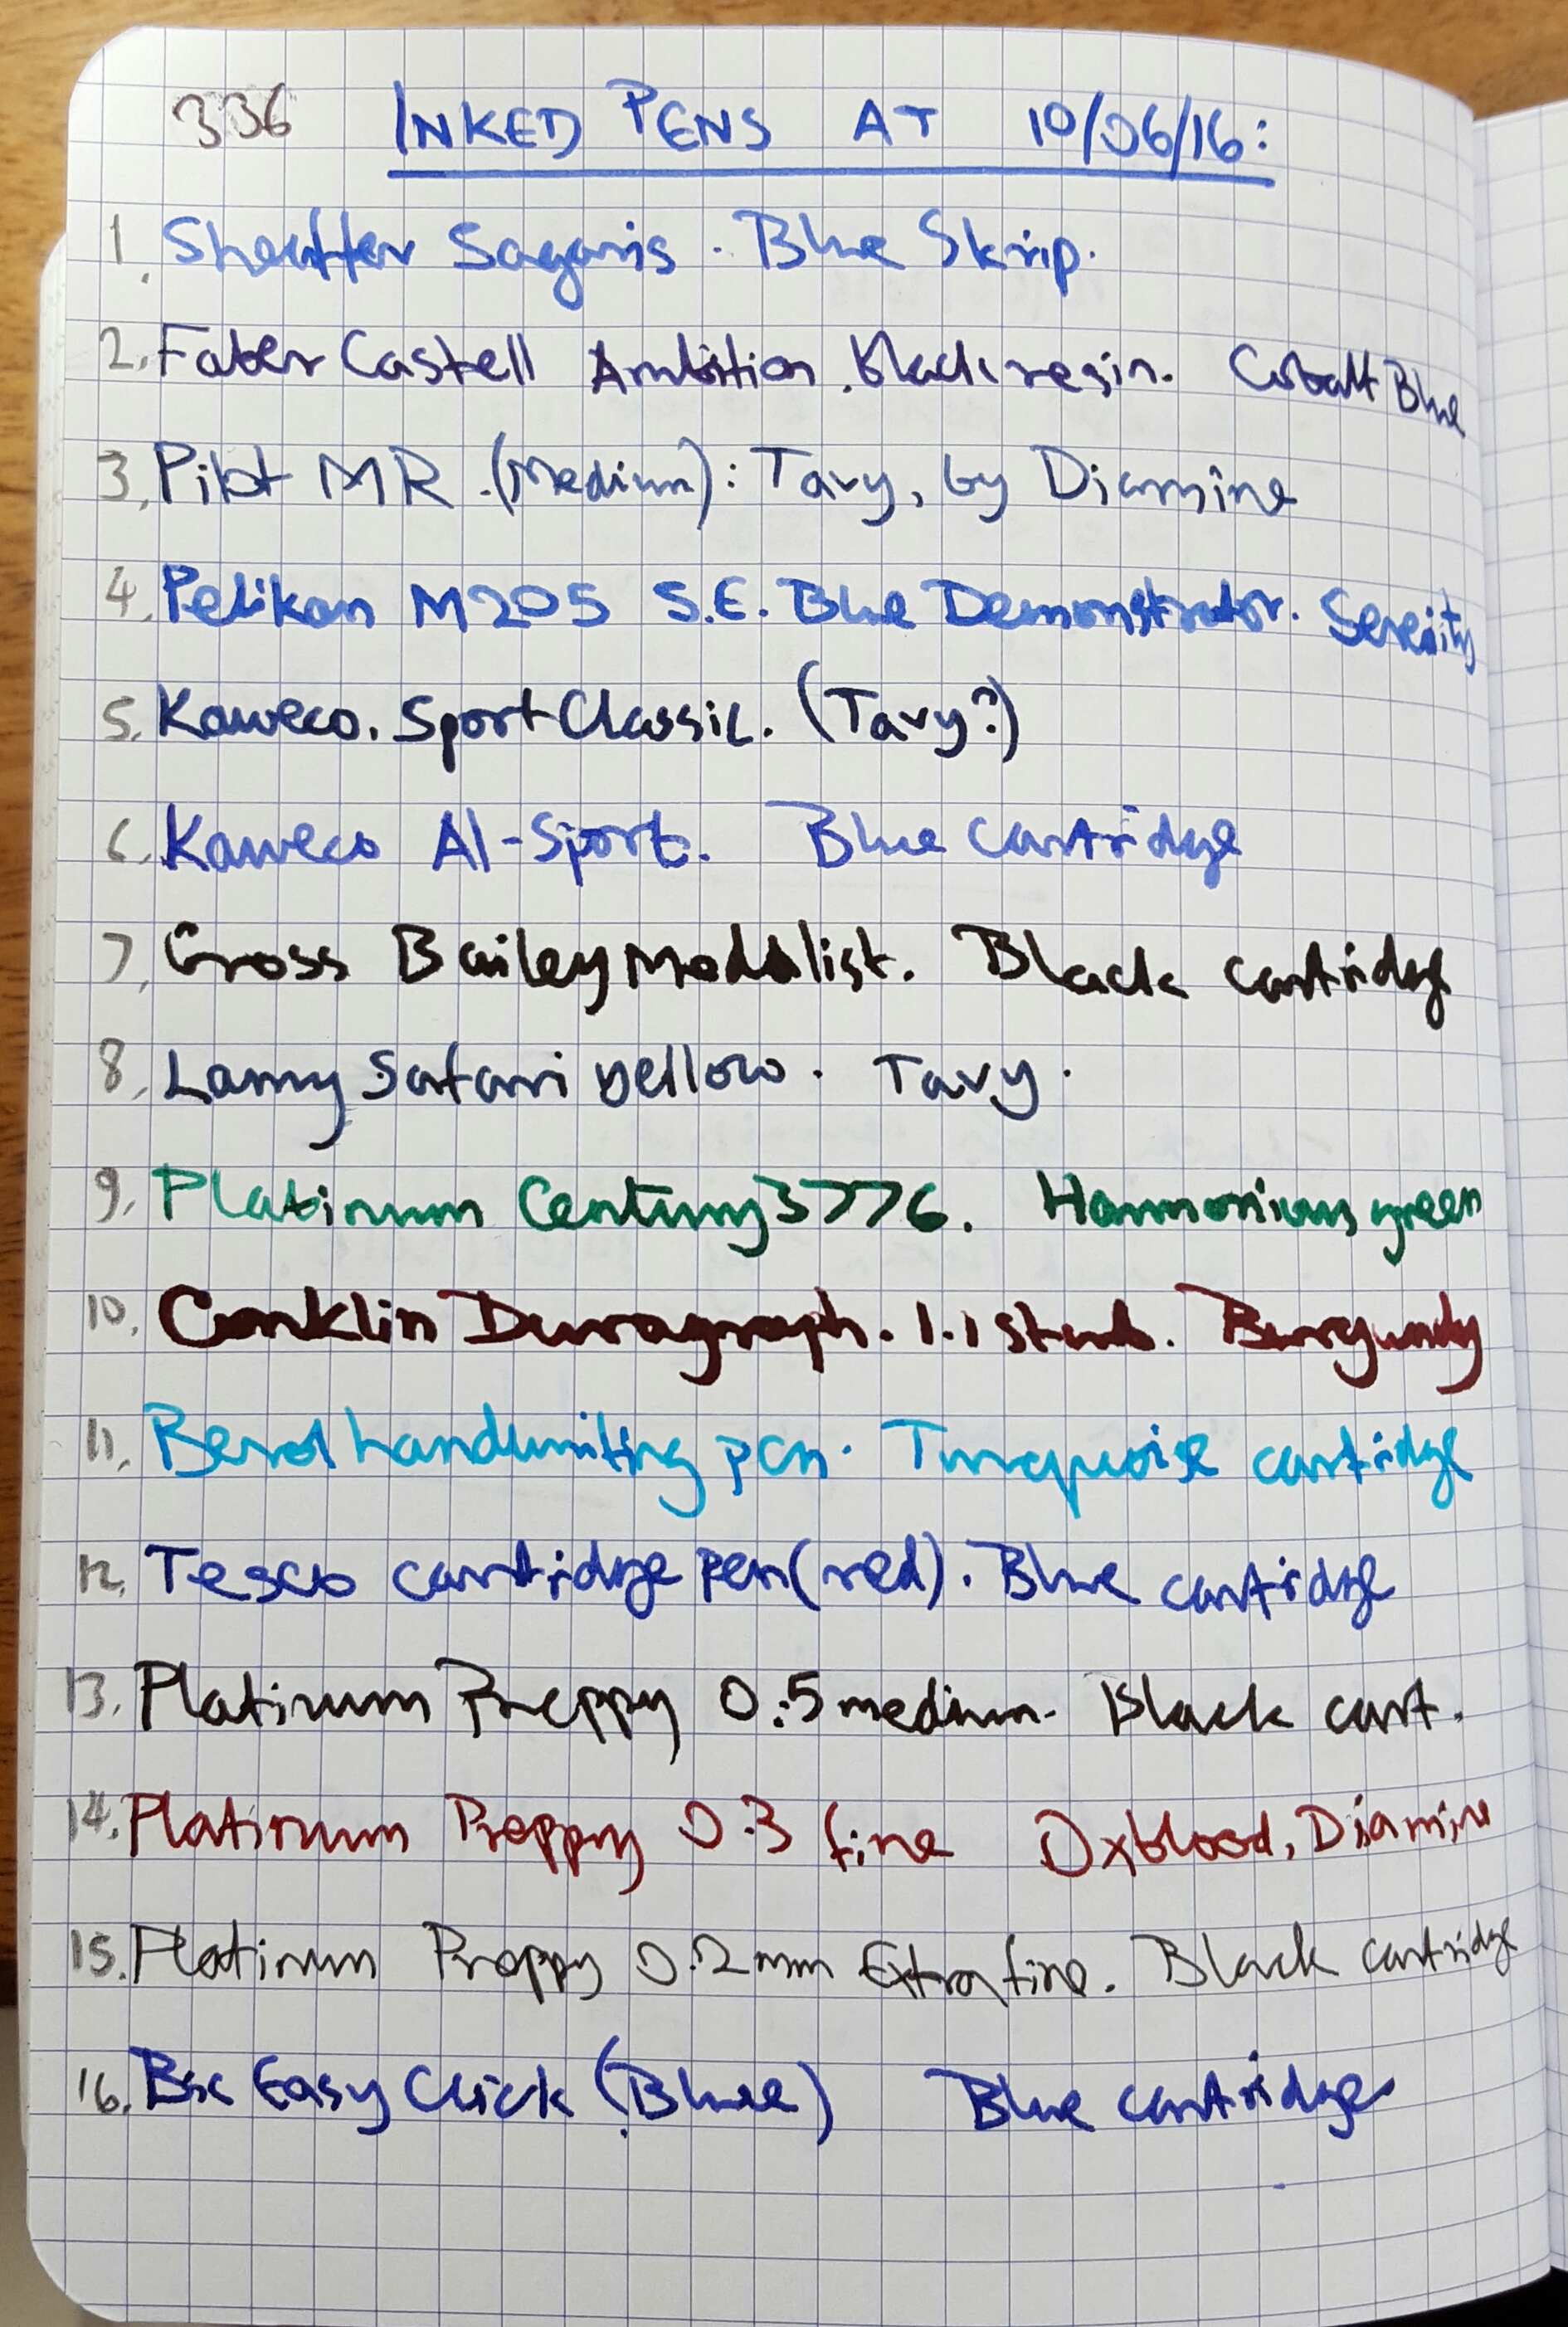 336 INKED PENS AT 10/06/16:
1. Sheaffer Sagaris. Blue Skrip.
2. Faber Castell Ambition. black resin. Cobalt Blue
3, Pilot MR. (Medium): Tavy, by Diamine
4. Pelikan M205 S.E. Blue Demonstrator. Serenity
5. Kaweco. Sport Classic. (Tavy?)
6. Kaweco Al-Sport. Blue Cartridge
7, Cross Bailey Medalist. Black cartridge
8, Lamy Safari yellow. Tavy.
9, Platinum Century 3776. Harmonious green
10, Conklin Duragraph. 1.1 stub. Burgundy
11, Berol handwriting pen. Turquoise cartridge
12, Tesco cartridge pen (red). Blue cartridge
13. Platinum Preppy 0.5 medium. Black cart.
14. Platinum Preppy 0.3 fine Oxblood, Diamine
15. Platinum Preppy 0.2mm Extra fine. Black cartridge
16. Bic Easy Click (Blue) Blue cartridge